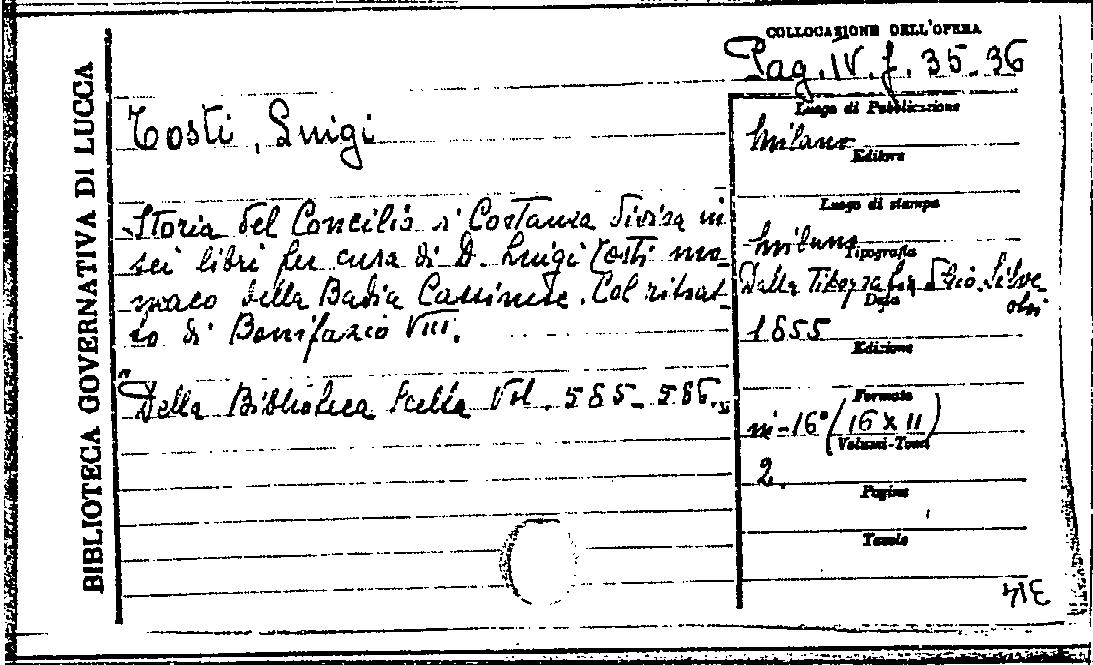 BIBLIOTECA GOVERNATIVA DI LUCCA
COLLOCAZIONE DELL'OPERA
Pag. IV. f. 35-36
Tosti, Luigi
Storia del Concilio di Costanza divisa in
sei libri per cura di D. Luigi Tosti mo-
naco della Badia Cassinese. Col ritrat-
to di Bonifazio VIII.
Della Biblioteca Scelta Vol. 585-586.
Luogo di Pubblicazione
Milano
Editore
Luogo di stampa
Milano
Tipografia
Dalla Tipografia di Gio. Silve-
stri
Data
1855
Edizione
Formato
in-16° (16 x 11)
Volumi-Tomi
2.
Pagine
Tavole